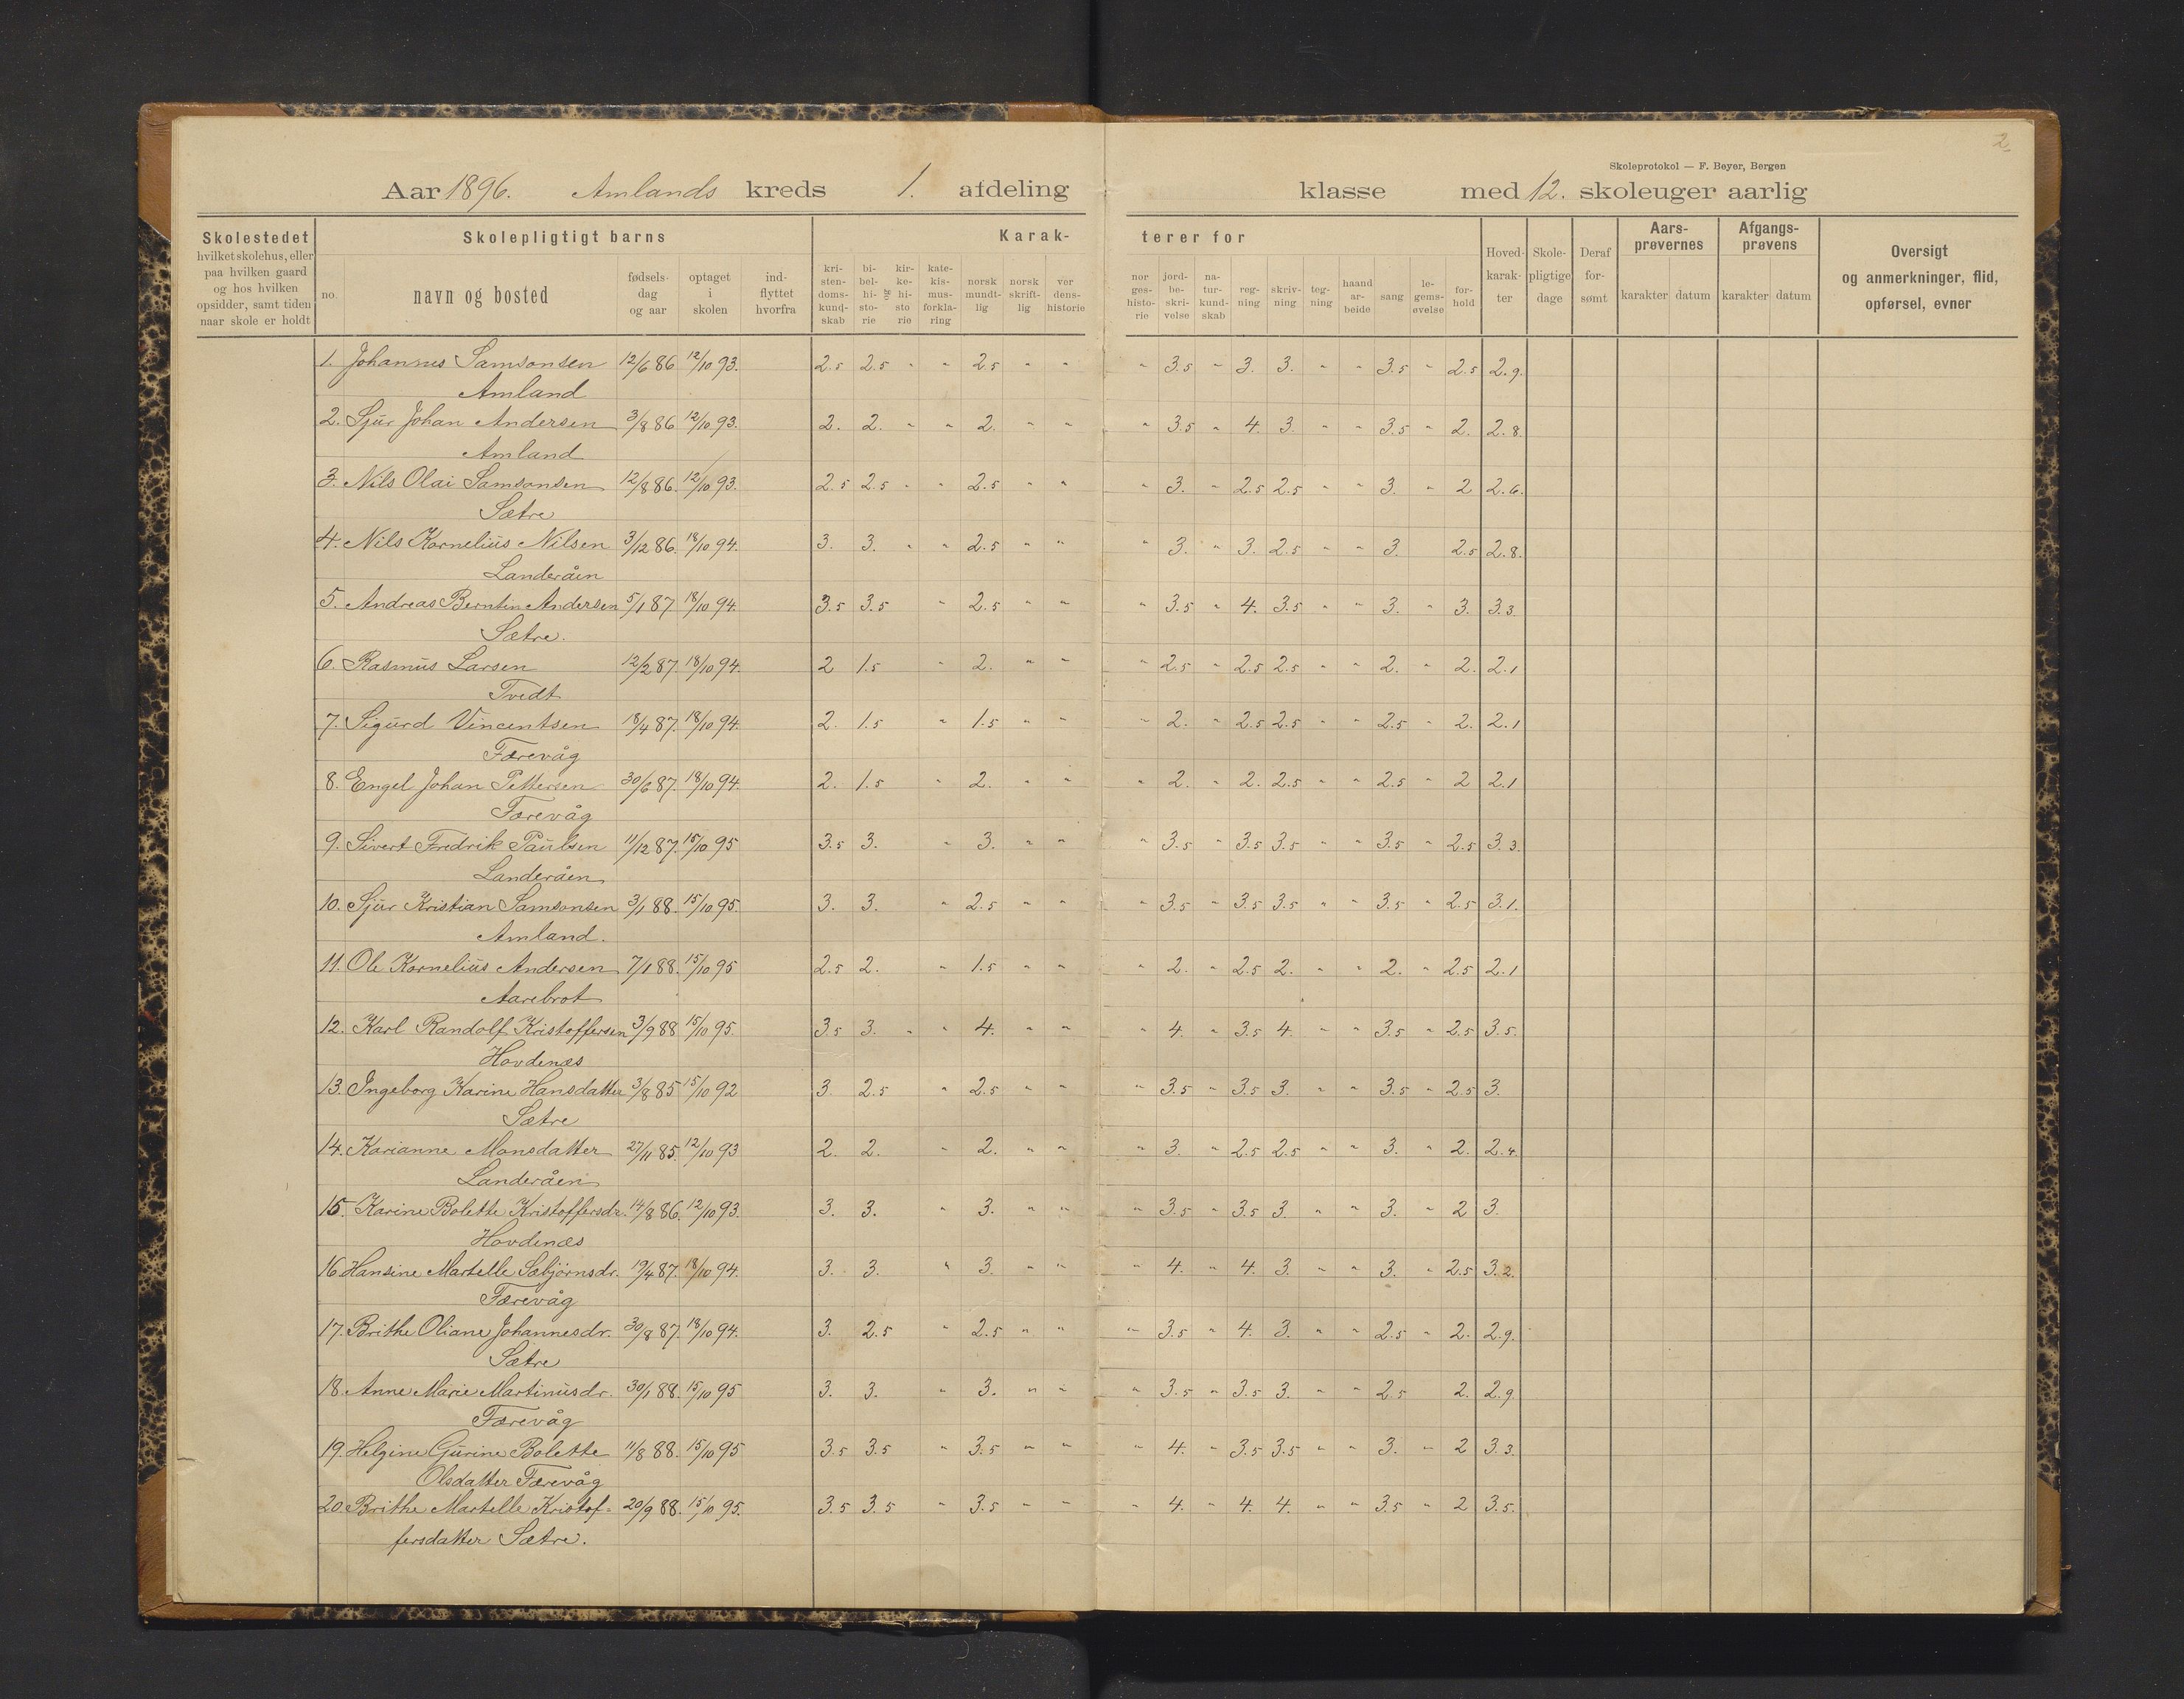 2
Skoleprotokol — F. Beyer, Bergen
Aar 1896. Amlands kreds 1. afdeling klasse med 12. skoleuger aarlig
Skolestedet
hvilket skolehus, eller
paa hvilken gaard
og hos hvilken
opsidder, samt tiden
naar skole er holdt
Skolepligtigt barns
no.
navn og bosted
fødsels-
dag
og aar
optaget
i
skolen
ind-
flyttet
hvorfra
Karak-
terer for
kri-
sten-
doms-
kund-
skab
bi-
bel-
hi-
sto-
rie
og
kir-
ke-
hi-
sto
rie
kate-
kis-
mus-
forkla-
ring
norsk
mundt-
lig
norsk
skrift-
lig
ver
dens-
historie
nor
ges-
histo-
rie
jord-
be-
skri-
velse
na-
tur-
kund-
skab
reg-
ning
skriv-
ning
teg-
ning
haand
ar-
beide
sang
le-
gems-
øvelse
for-
hold
Hoved-
karak-
ter
Skole-
pligtige
dage
Deraf
for-
sømt
Aars-
prøvernes
karakter datum
Afgangs-
prøvens
karakter datum
Oversigt
og anmerkninger, flid,
opførsel, evner
1. Johannes Samsonsen 12/6 86 12/10 93. 2.5 2.5 " " 2.5 " " " 3.5 " 3. 3. " " 3.5 " 2.5 2.9.
Amland
2. Sjur Johan Andersen 3/8 86 12/10 93. 2. 2. " " 2. " " " 3.5 " 4. 3. " " 3.5 " 2. 2.8.
Amland
3. Nils Olai Samsonsen 12/8 86. 12/10 93. 2.5 2.5 " " 2.5 " " " 3. " 2.5 2.5 " " 3. " 2 2.6.
Sætre
4. Nils Kornelius Nilsen 3/12 86. 18/10 94. 3. 3. " " 2.5 " " " 3. " 3. 2.5 " " 3. 2.5 2.8.
Landeråen
5. Andreas Berntin Andersen 5/1 87 18/10 94. 3.5 3.5 " 2.5 " " " 3.5 " 4. 3.5 " " 3. " 3. 3.3
Sætre.
6. Rasmus Larsen 12/2 87. 18/10 94. 2 1.5 " 2. " " " 2.5 " 2.5 2.5 " " 2. " 2. 2.1
Tvedt
7. Sigurd Vincentsen 18/4 87. 18/10 94. 2. 1.5 " 1.5 " " " 2. " 2.5 2.5 " " 2.5 " 2. 2.1
Færevåg
8. Engel Johan Pettersen 30/6 87. 18/10 94. 2. 1.5 " 2. " " " 2. " 2. 2.5 " " 2.5 " 2 2.1
Færevåg
9. Sivert Fredrik Paulsen 11/12 87. 15/10 95 3.5 3. " 3. " " " 3.5 " 3.5 3.5 " " 3.5 " 2.5 3.3.
Landeråen
10. Sjur Kristian Samsonsen 3/1 88. 15/10 95. 3. 3. " 2.5 " " " 3.5 " 3.5 3.5 " " 3.5 " 2.5 3.1.
Amland.
11. Ole Kornelius Andersen 7/1 88. 15/10 95 2.5 2. " 1.5 " " " 2. " 2.5 2. " " 2. " 2.5 2.1
Aarebrot
12. Karl Randolf Kristoffersen 3/9 88 15/10 95. 3.5 3. " " 4. " " " 4. " 3.5 4. " " 3.5 " 2.5 3.5.
Hovdenæs
13. Ingeborg Karine Hansdatter 3/8 85 15/10 92 3. 2.5 " 2.5 " " " 3.5 " 3.5 3. " " 3.5 " 2.5 3.
Sætre
14. Karianne Monsdatter 27/11 85. 12/10 93 2. 2. " 2. " " " 3. " 2.5 2.5 " " 3. " 2. 2.4.
Landeråen
15. Karine Bolette Kristoffersdr. 14/8 86. 12/10 93. 3. 3. " 3. " " " 3.5 " 3.5 3. " " 3. " 2 3.
Hovdenæs
16. Hansine Martelle Sæbjørnsdr. 19/4 87. 18/10 94. 3. 3. " 3. " " " 4. " 4. 3. " " 3. " 2.5 3.2.
Færevåg
17. Brithe Oliane Johannesdr. 30/8 87. 18/10 94. 3. 2.5 " 2.5 " " " 3.5 " 4. 3. " " 2.5 " 2. 2.9.
Sætre
18. Anne Marie Martinusdr. 30/1 88. 15/10 95 3. 3. " 3. " " " 3.5 " 3.5 3. " " 2.5 2. 2.9.
Færevåg
19. Helgine Gurine Bolette 11/8 88. 15/10 95 3.5 3.5 " 3.5 " " " 4. " 3.5 3.5 " " 3. " 2 3.3.
Olsdatter Færevåg
20. Brithe Martelle Kristof- 20/9 88. 15/10 95. 3.5 3.5 " 3.5 " " " 4. " 4. 4. " " 3.5 " 2 3.5.
fersdatter Sætre.